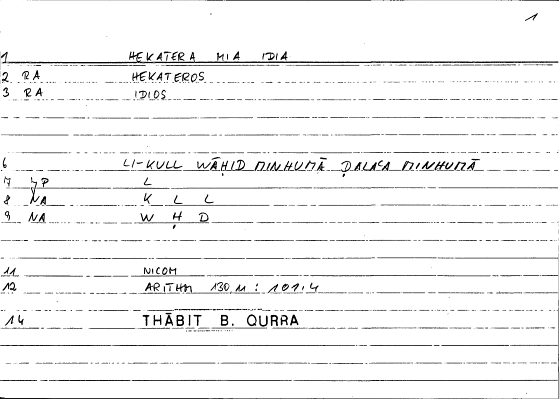 1
1 HEKATERA MIA IDIA
2 RA HEKATEROS
3 RA IDIOS
6 LI-KULL WĀḤID MINHUMĀ ḌALAʿA MINHUMĀ
7 L
8 NA K L L
9 NA W Ḥ D
11 NICOM
12 ARITHM 130,11 : 101,4
14 THĀBIT B. QURRA